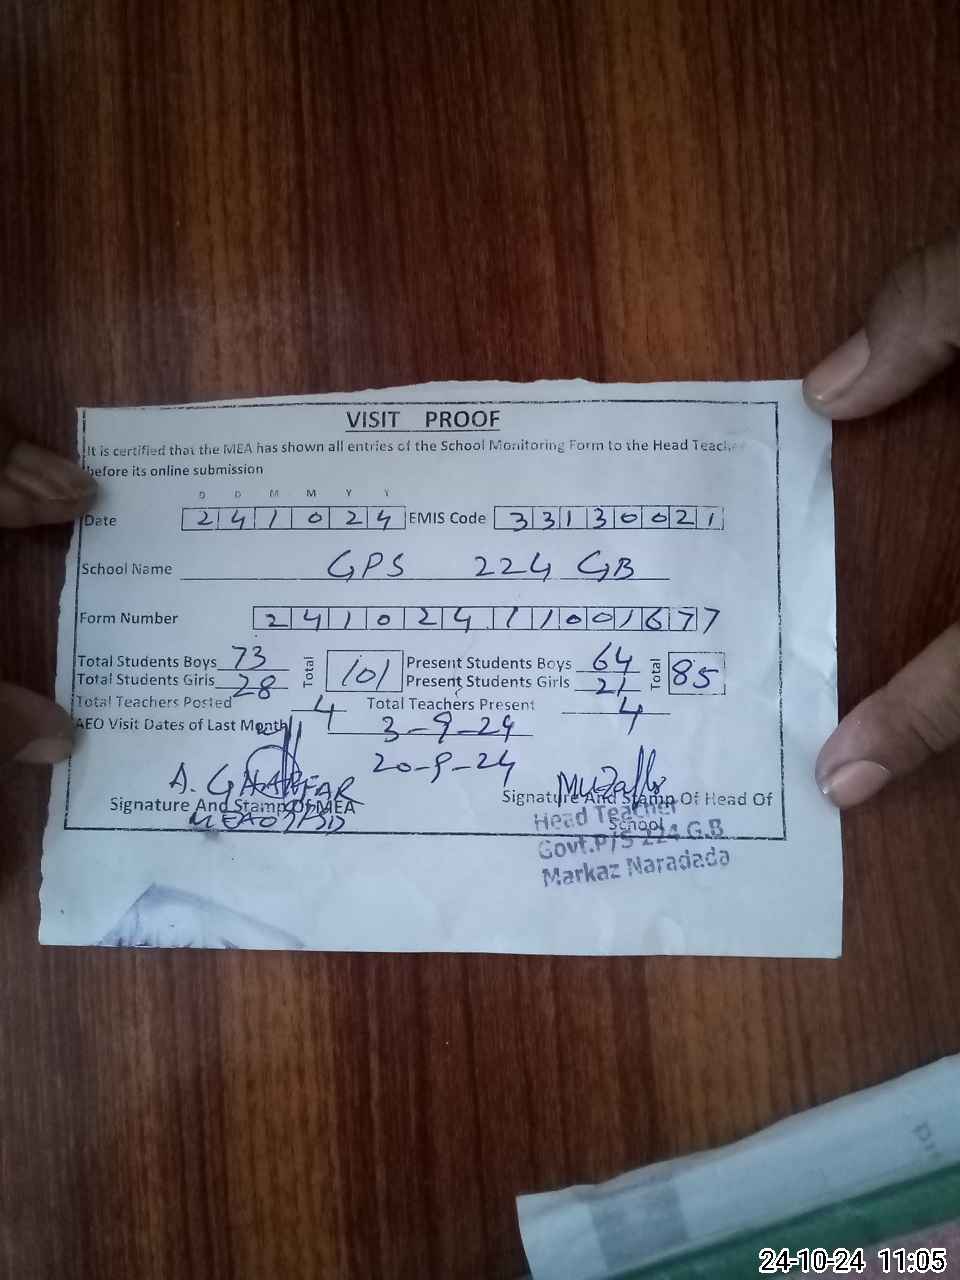 VISIT PROOF
It is certified that the MEA has shown all entries of the School Monitoring Form to the Head Teacher
before its online submission
D D M M Y Y
Date 241024 EMIS Code 33130021
School Name GPS 224 GB
Form Number 24102411001677
Total Students Boys 73 Total 101 Present Students Boys 64 Total 85
Total Students Girls 28 Present Students Girls 21
Total Teachers Posted 4 Total Teachers Present 4
AEO Visit Dates of Last Month 3-9-24
20-9-24
A. GHAFFAR
Signature And Stamp Of MEA Signature And Stamp Of Head Of
School
Head Teacher
Govt.P/S 224 G.B
Markaz Naradada
24-10-24 11:05